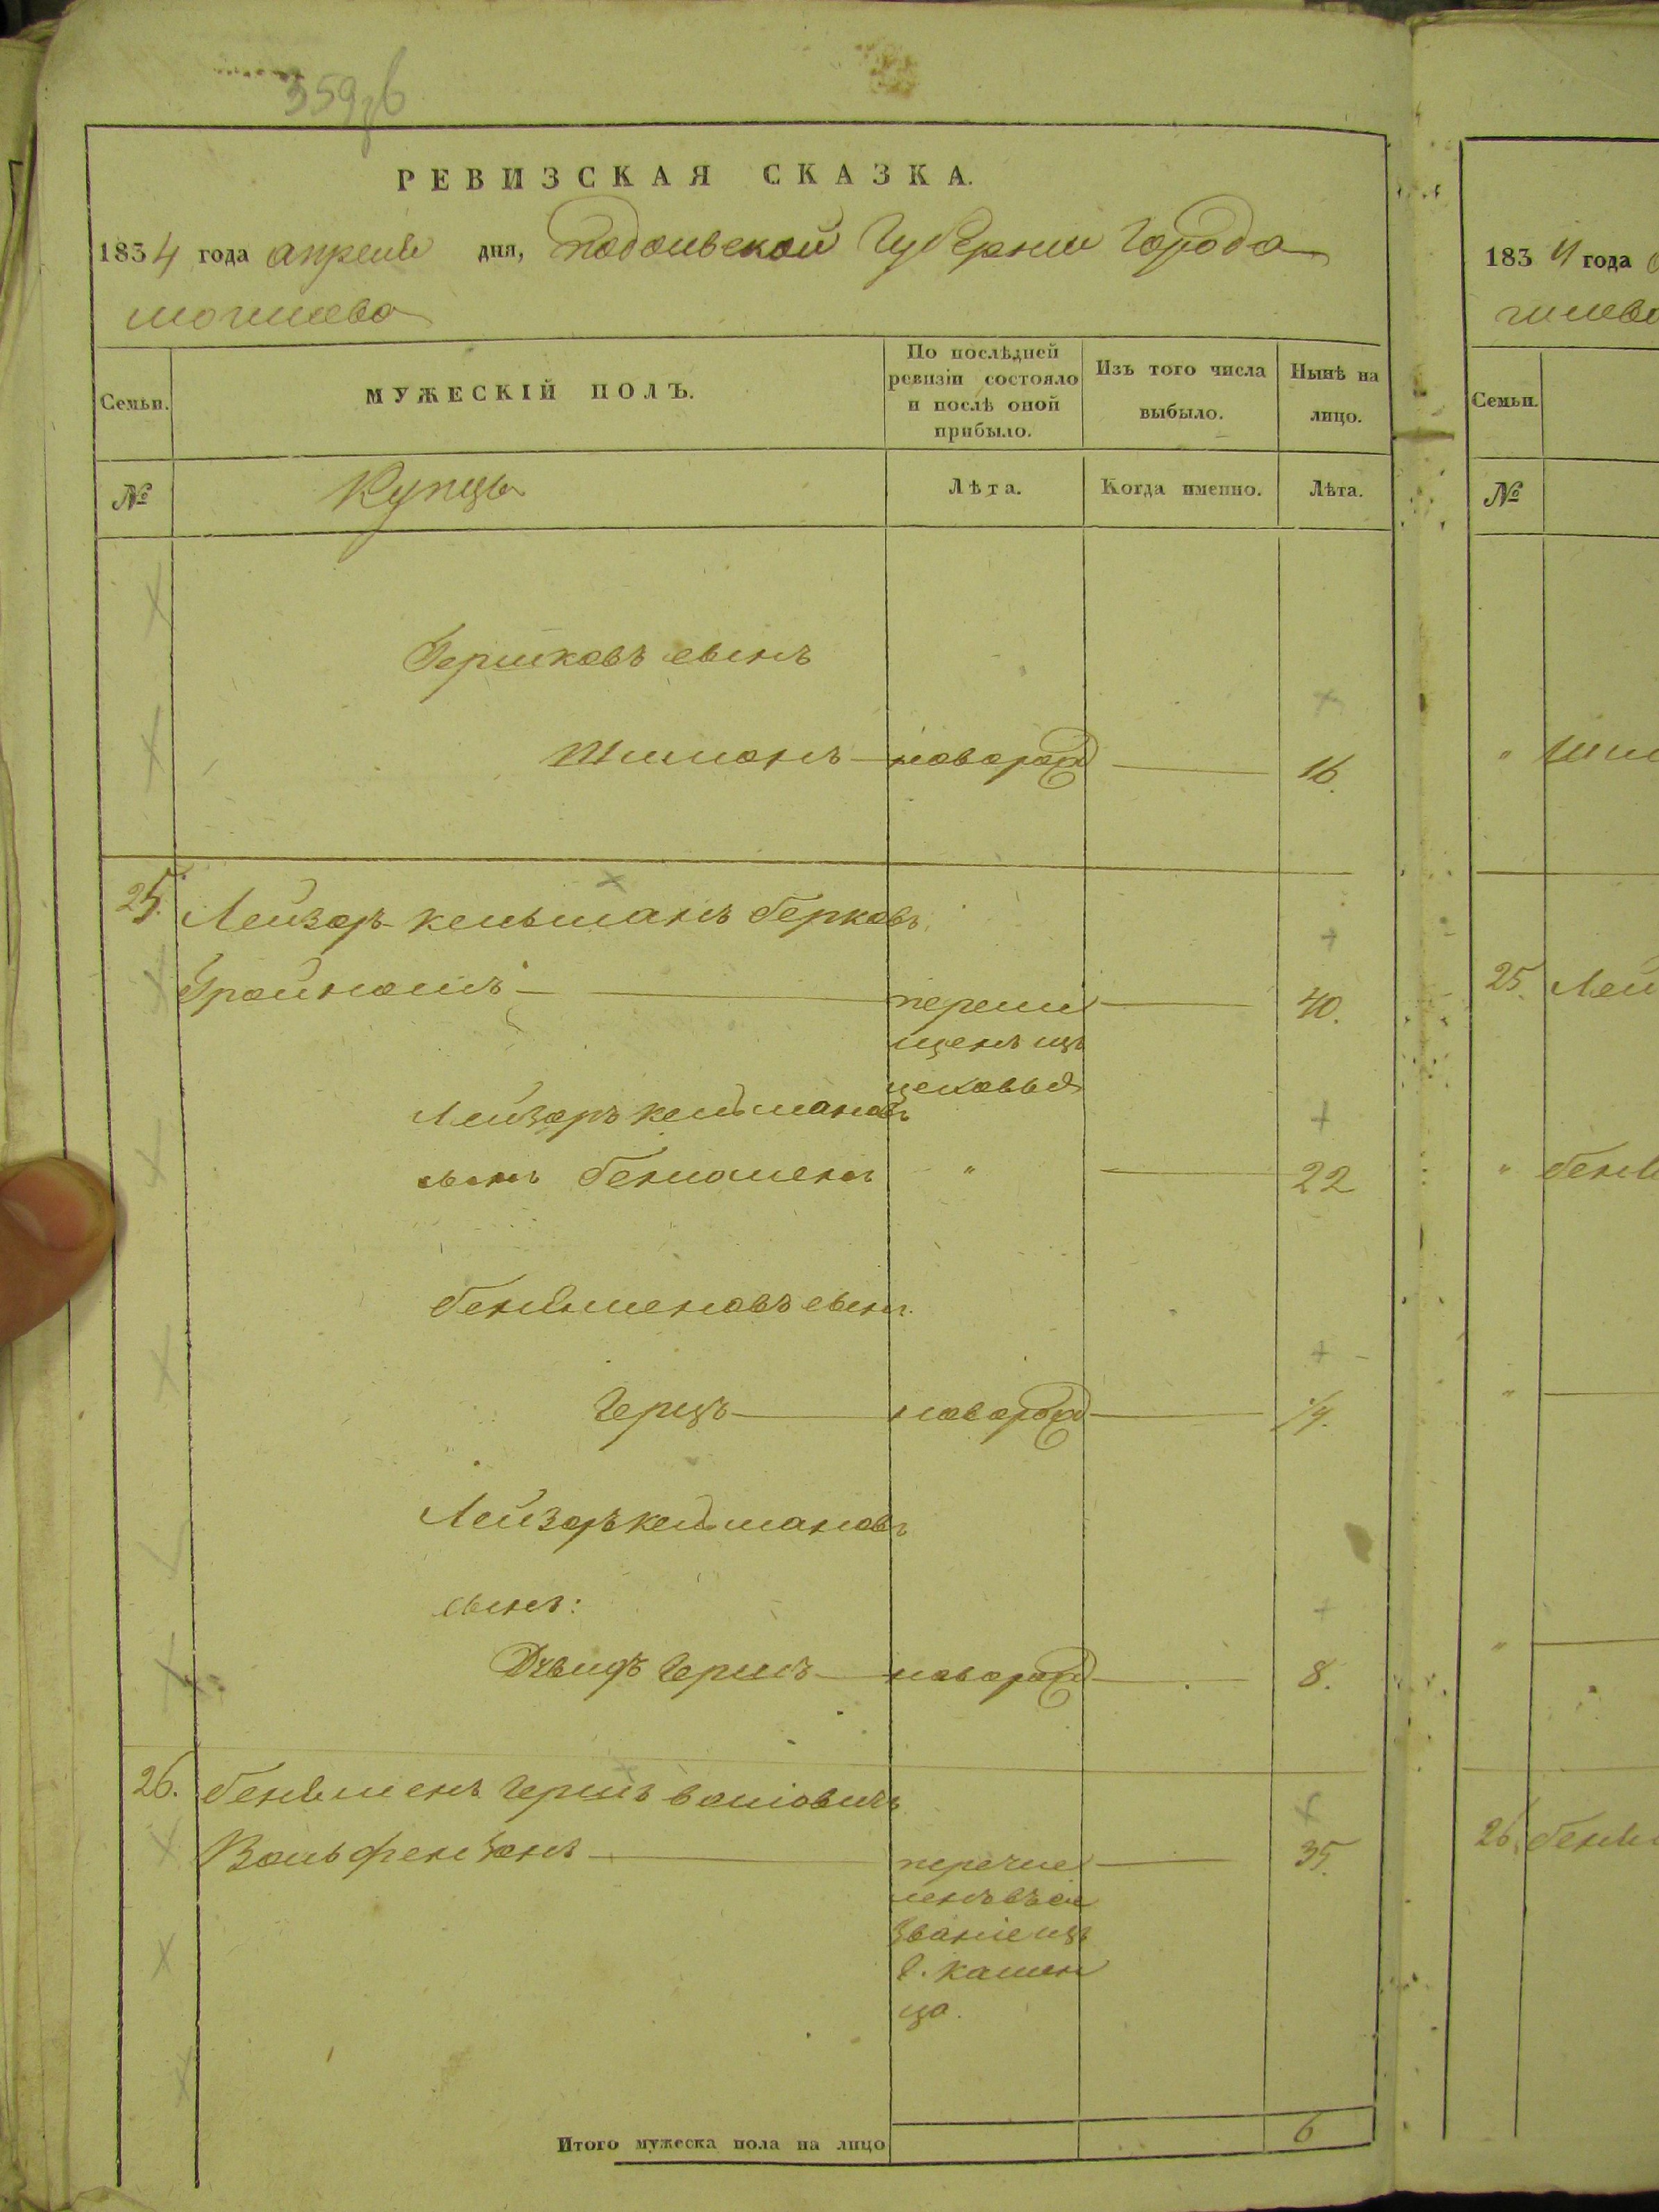 359
РЕВИЗСКАЯ СКАЗКА.
1834 года апреля дня, Подольской Губернии Города
Могилева
Семьи.
МУЖЕСКІЙ ПОЛЪ.
По послѣдней ревизіи состояло и послѣ оной прибыло.
Изъ того числа выбыло.
Нынѣ на лицо.
№
Купцы
Лѣта.
Когда именно.
Лѣта.
Гершковъ сынъ
Шимонъ новорож 16.
25. Лейзоръ Кельманъ Берковъ
перемѣ 40.
щенъ изъ
цеховыхъ
Лейзоръ Кельмановъ
сынъ Беніоменъ " 22
Беніоменовъ сынъ.
Герцъ новорож
Лейзоръ Кельмановъ
сынъ:
Гершъ новорож 8.
26. Беніоменъ Гершъ
Вольфензонъ перечис 35.
ленъ въ сіе
званіе изъ
г. Камен
ца.
Итого мужеска пола на лицо 6
1834 года
гилева
Семьи.
№
" Шим
25. Лей
" Бені
"
"
26. Бені